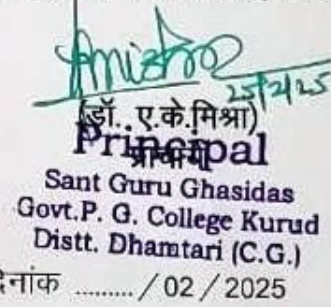 25/2/25
(डॉ. ए.के.मिश्रा)
प्राचार्य
Principal
Sant Guru Ghasidas
Govt.P. G. College Kurud
Distt. Dhamtari (C.G.)
दिनांक ......... / 02 / 2025